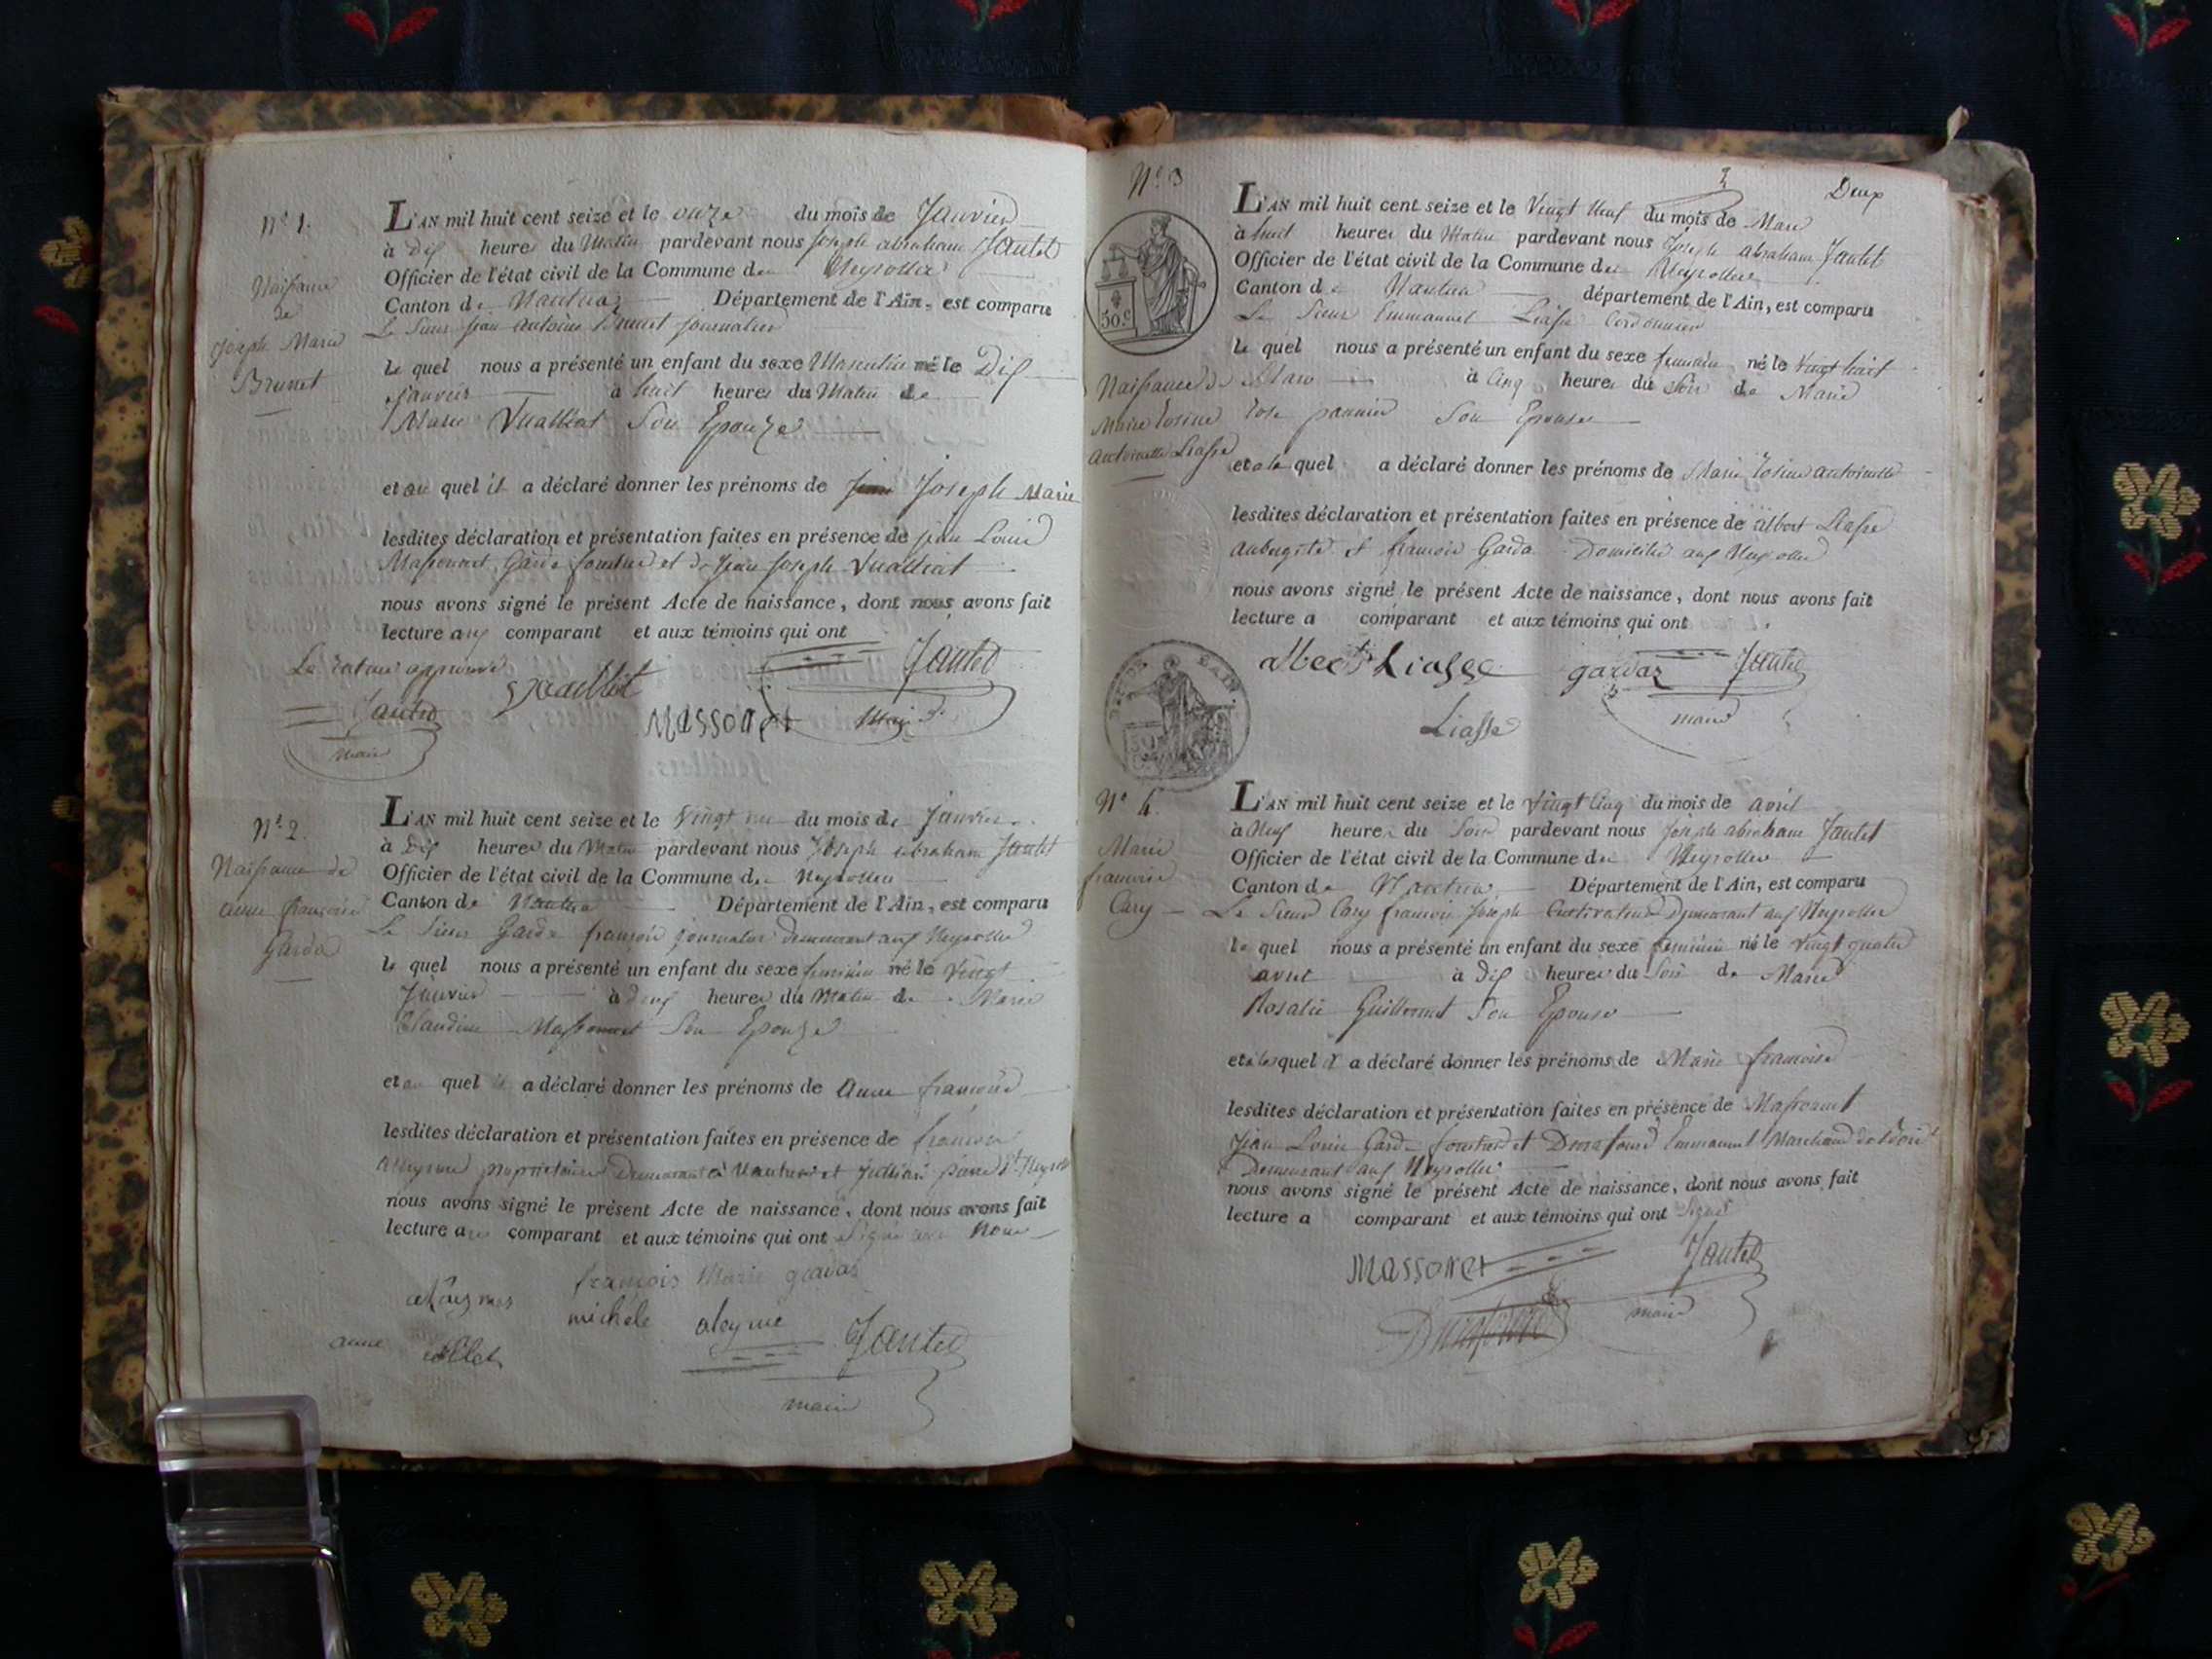 Nº 1.
L'AN mil huit cent seize et le onze du mois de Janvier
à dix heures du Matin pardevant nous Joseph abraham Jantet
Officier de l'état civil de la Commune des Neyrolles
Canton de Nantua Département de l'Ain, est comparu
Le Sieur jean Antoine Brunet journalier
Naissance
de
joseph Marie
Brunet
le quel nous a présenté un enfant du sexe Masculin né le Dix
Janvier à huit heures du Matin de
Marie Vuaillat Son Epouze
et au quel il a déclaré donner les prénoms de Joseph Marie
lesdites déclaration et présentation faites en présence de jean Louis
Massonnet Garde forestier et de jean joseph Vuailliat
nous avons signé le présent Acte de naissance, dont nous avons fait
lecture aux comparant et aux témoins qui ont
La rature approuvé
Jantet
Massonet
Jantet
maire
Maire
Nº 2.
Naissance de
anne françoise
Garda
L'AN mil huit cent seize et le Vingt un du mois de Janvier
à dix heures du Matin pardevant nous Joseph abraham Jantet
Officier de l'état civil de la Commune des Neyrolles
Canton de Nantua Département de l'Ain, est comparu
Le Sieur Garda françois journalier demeurant aux Neyrolles
le quel nous a présenté un enfant du sexe feminin né le Vingt
Janvier à deux heures du Matin de Marie
Claudine Massonnet Son Epouze
et au quel il a déclaré donner les prénoms de Anne françoise
lesdites déclaration et présentation faites en présence de françois
proprietaire Demeurant à Nantua et
nous avons signé le présent Acte de naissance, dont nous avons fait
lecture aux comparant et aux témoins qui ont Signé avec Nous
françois Marie
michele aleyme
Jantet
anne
maire
Nº 3
2
Deux
L'AN mil huit cent seize et le Vingt Neuf du mois de Mars
à huit heures du Matin pardevant nous Joseph abraham Jantet
Officier de l'état civil de la Commune des Neyrolles
Canton de Nantua département de l'Ain, est comparu
Le Sieur Emmanuel Liasse Cordonnier
50.c
le quel nous a présenté un enfant du sexe feminin né le Vingt huit
Mars à Cinq heures du Soir de Marie
Rose pannier Son Epouse
Naissance de
Marie Rosine
Antoinette Liasse
et a le quel a déclaré donner les prénoms de Marie Rosine antoinette
lesdites déclaration et présentation faites en présence de albert Liasse
Aubergiste et françois Garda Domicilié aux Neyrolles
nous avons signé le présent Acte de naissance, dont nous avons fait
lecture a comparant et aux témoins qui ont
albert Liasse
gardaz
Jantet
Liasse
maire
Nº 4.
Marie
francoise
Cary
L'AN mil huit cent seize et le Vingt Cinq du mois de avril
à Neuf heures du Soir pardevant nous Joseph abraham Jantet
Officier de l'état civil de la Commune des Neyrolles
Canton de Nantua Département de l'Ain, est comparu
Le Sieur Cary francois Joseph Cultivateur Demeurant aux Neyrolles
le quel nous a présenté un enfant du sexe feminin né le Vingt quatre
avril à dix heures du Soir de Marie
Rosalie Guillermet Son Epouse
et a lequel il a déclaré donner les prénoms de Marie francoise
lesdites déclaration et présentation faites en présence de Massonnet
Jean Louis Garde forestier et Emmanuel Marchand
Demeurant aux Neyrolles
nous avons signé le présent Acte de naissance, dont nous avons fait
lecture a comparant et aux témoins qui ont Signé
Massonet
Jantet
maire